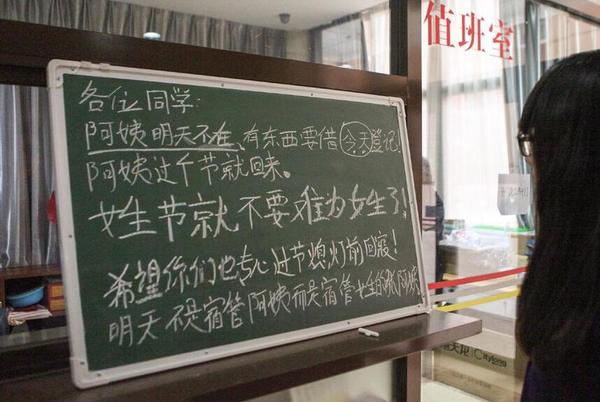 值班室
各位同学:
阿姨明天不在、有东西要借今天登记!
阿姨过个节就回来。
女生节就不要难为女生了!
希望你们也专心过节熄灯前回寝!
明天不是宿管阿姨而是宿管女生
天龙